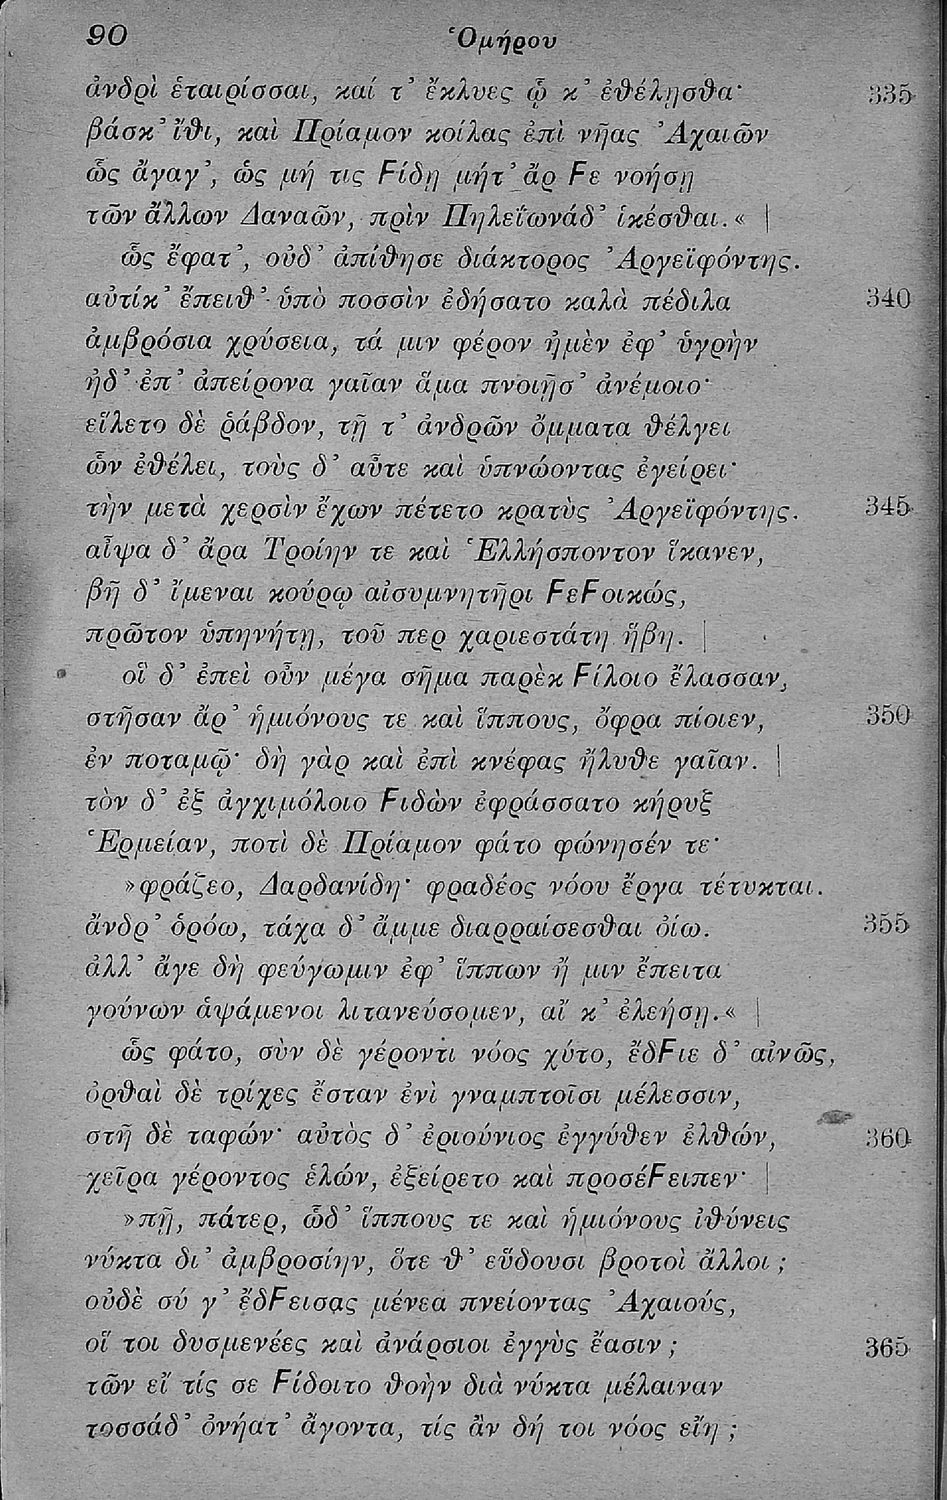 90 Ὁμήρου
ἀνδρὶ ἑταιρίσσαι, καί τ' ἔκλυες ᾧ κ' ἐθέλῃσθα· 335
βάσκ' ἴθι, καὶ Πρίαμον κοίλας ἐπὶ νῆας Ἀχαιῶν
ὣς ἄγαγ', ὡς μή τις Ϝίδῃ μήτ' ἄρ Ϝε νοήσῃ
τῶν ἄλλων Δαναῶν, πρὶν Πηλεΐωνάδ' ἱκέσθαι.« |
ὣς ἔφατ', οὐδ' ἀπίθησε διάκτορος Ἀργεϊφόντης.
αὐτίκ' ἔπειθ' ὑπὸ ποσσὶν ἐδήσατο καλὰ πέδιλα 340
ἀμβρόσια χρύσεια, τά μιν φέρον ἠμὲν ἐφ' ὑγρὴν
ἠδ' ἐπ' ἀπείρονα γαῖαν ἅμα πνοιῇσ' ἀνέμοιο·
εἵλετο δὲ ῥάβδον, τῇ τ' ἀνδρῶν ὄμματα θέλγει
ὧν ἐθέλει, τοὺς δ' αὖτε καὶ ὑπνώοντας ἐγείρει·
τὴν μετὰ χερσὶν ἔχων πέτετο κρατὺς Ἀργεϊφόντης. 345
αἶψα δ' ἄρα Τροίην τε καὶ Ἑλλήσποντον ἵκανεν,
βῆ δ' ἴμεναι κούρῳ αἰσυμνητῆρι ϜεϜοικώς,
πρῶτον ὑπηνήτῃ, τοῦ περ χαριεστάτη ἥβη. |
οἳ δ' ἐπεὶ οὖν μέγα σῆμα παρὲκ Ϝίλοιο ἔλασσαν,
στῆσαν ἄρ' ἡμιόνους τε καὶ ἵππους, ὄφρα πίοιεν, 350
ἐν ποταμῷ· δὴ γὰρ καὶ ἐπὶ κνέφας ἤλυθε γαῖαν. |
τὸν δ' ἐξ ἀγχιμόλοιο Ϝιδὼν ἐφράσσατο κήρυξ
Ἑρμείαν, ποτὶ δὲ Πρίαμον φάτο φώνησέν τε·
»φράζεο, Δαρδανίδη· φραδέος νόου ἔργα τέτυκται.
ἄνδρ' ὁρόω, τάχα δ' ἄμμε διαρραίσεσθαι ὀίω. 355
ἀλλ' ἄγε δὴ φεύγωμιν ἐφ' ἵππων ἤ μιν ἔπειτα
γούνων ἁψάμενοι λιτανεύσομεν, αἴ κ' ἐλεήσῃ.« |
ὣς φάτο, σὺν δὲ γέροντι νόος χύτο, ἔδϜιε δ' αἰνῶς,
ὀρθαὶ δὲ τρίχες ἔσταν ἐνὶ γναμπτοῖσι μέλεσσιν,
στῆ δὲ ταφών· αὐτὸς δ' ἐριούνιος ἐγγύθεν ἐλθών, 360
χεῖρα γέροντος ἑλών, ἐξείρετο καὶ προσέϜειπεν· |
»πῇ, πάτερ, ὧδ' ἵππους τε καὶ ἡμιόνους ἰθύνεις
νύκτα δι' ἀμβροσίην, ὅτε θ' εὕδουσι βροτοὶ ἄλλοι;
οὐδὲ σύ γ' ἔδϜεισας μένεα πνείοντας Ἀχαιούς,
οἵ τοι δυσμενέες καὶ ἀνάρσιοι ἐγγὺς ἔασιν; 365
τῶν εἴ τίς σε Ϝίδοιτο θοὴν διὰ νύκτα μέλαιναν
τοσσάδ' ὀνήατ' ἄγοντα, τίς ἂν δή τοι νόος εἴη;